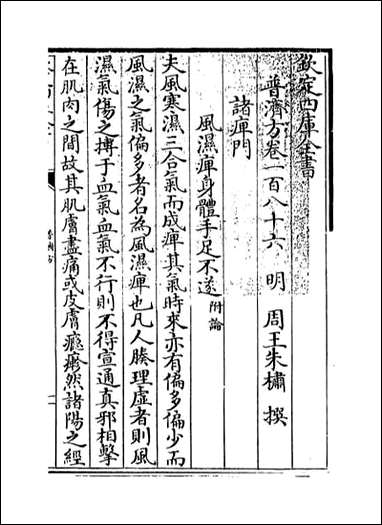 欽定四庫全書
普濟方卷一百八十六　明　周王朱橚　撰
諸痺門
風濕痺身體手足不遂附論
夫風寒濕三合氣而成痺其氣時來亦有偏多偏少而
風濕之氣偏多者名為風濕痺也凡人腠理虛者則風
濕氣傷之搏于血氣血氣不行則不得宣通真邪相擊
在肌肉之間故其肌膚盡痛或皮膚㿏瘮然諸陽之經